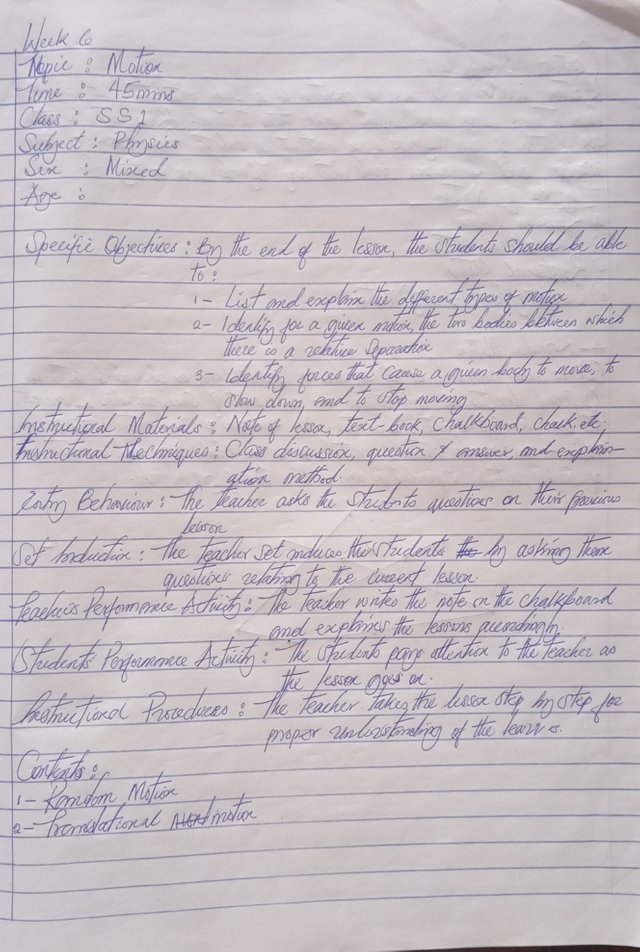 Week 6
Topic : Motion
Time : 45mins
Class : SS1
Subject : Physics
Sex : Mixed
Age :
Specific Objectives : By the end of the lesson, the students should be able
to :
1- List and explain the different types of motion
2- Identify for a given motion, the two bodies between which
there is a relative separation
3- Identify forces that cause a given body to move, to
slow down, and to stop moving
Instructional Materials : Note of lesson, text-book, chalkboard, chalk, etc,
Instructional Techniques : Class discussion, question & answer, and explan-
ation method.
Entry Behaviour : The teacher asks the students questions on their previous
lesson
Set Induction : The teacher set induces the students by asking them
questions relating to the current lesson.
Teacher's Performance Activity : The teacher writes the note on the chalkboard
and explains the lessons accordingly.
Students Performance Activity : The students pays attention to the teacher as
the lesson goes on.
Instructional Procedures : The teacher takes the lesson step by step for
proper understanding of the learners.
Contents :
1- Random Motion
2- Translational motion